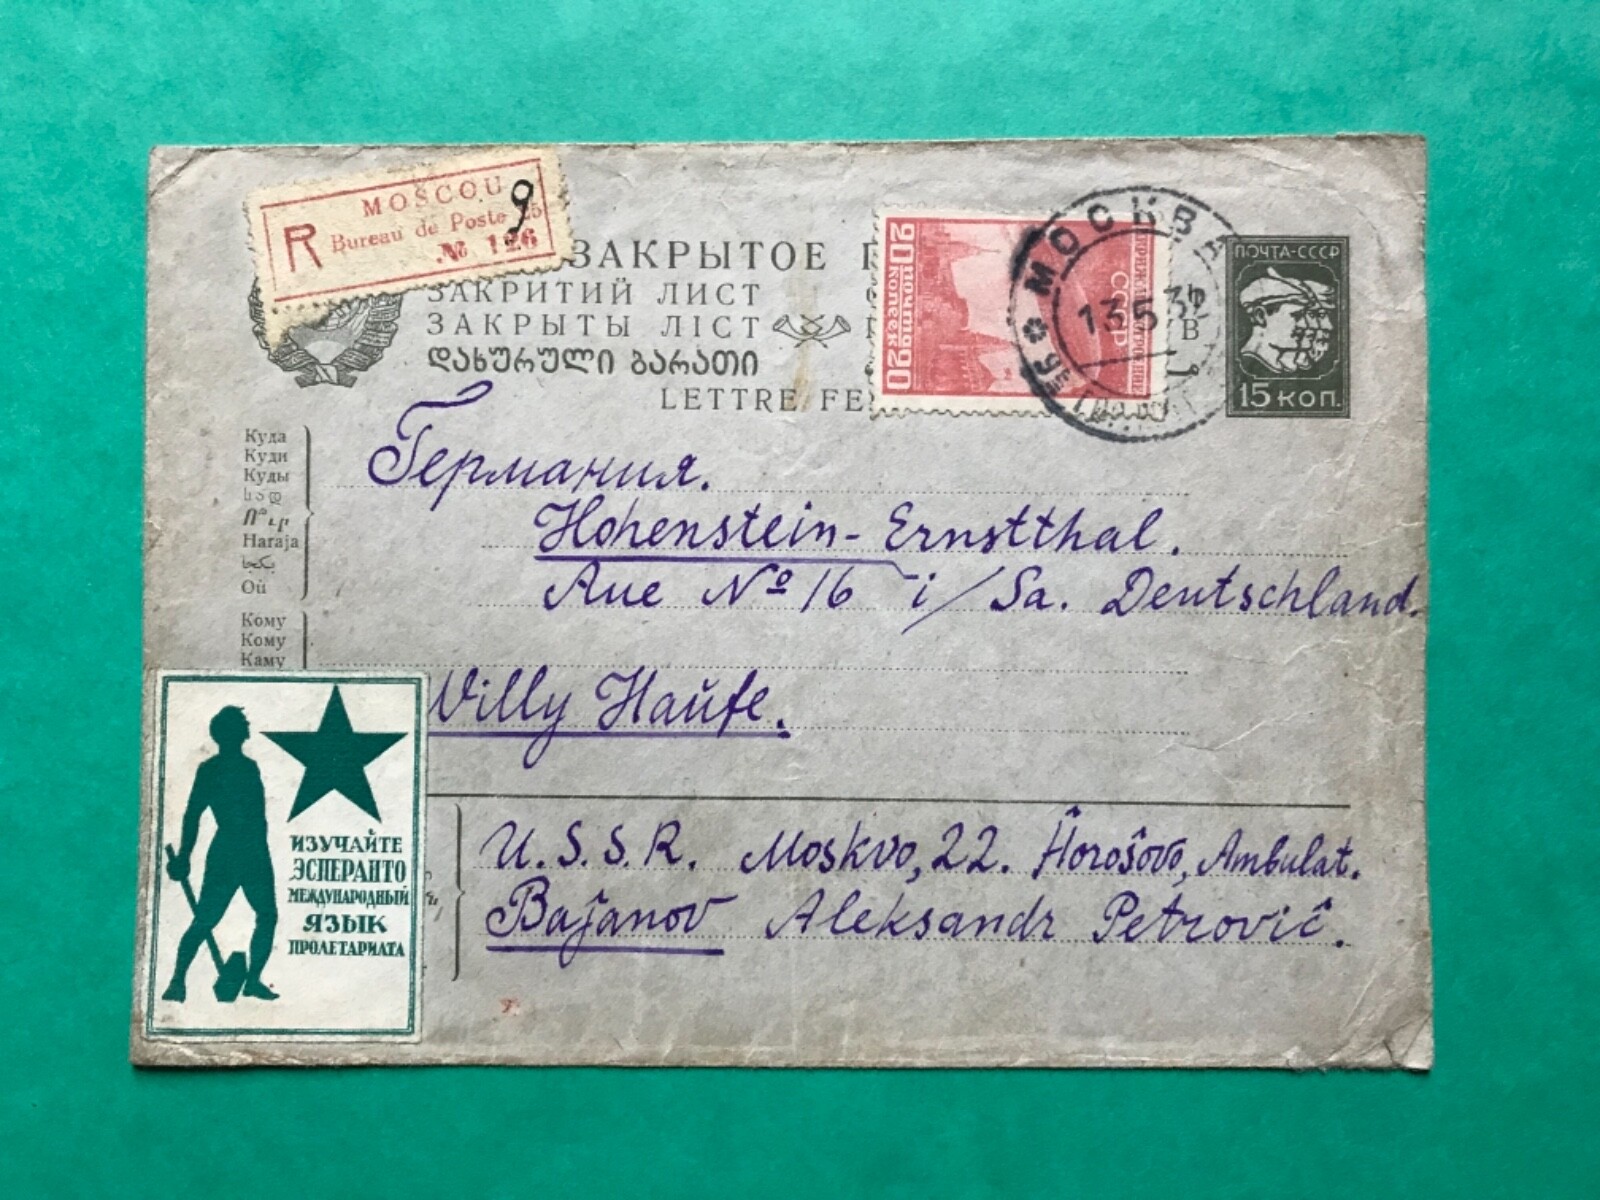 MOSCOU 9
R Bureau de Poste 25
№ 126
ЗАКРЫТОЕ
ЗАКРИТИЙ ЛИСТ
ЗАКРЫТЫ ЛІСТ
ᲓᲐᲮᲣᲠᲣᲚᲘ ᲑᲐᲠᲐᲗᲘ
LETTRE FE
20 ПОЧТА 20
КОПЕЕК
СССР
МОСКВА
13 5 34
55
1
ПОЧТА-СССР
15 КОП.
Куда
Куди
Куды
სად
Ո՞ւր
Haraja
Où
Германия.
Hohenstein-Ernstthal.
Aue № 16 i/Sa. Deutschland.
Кому
Кому
Каму
Willy Haŭfe.
U.S.S.R. Moskvo, 22. Ĥoroŝovo, Ambulat.
Baĵanov Aleksandr Petroviĉ.
ИЗУЧАЙТЕ
ЭСПЕРАНТО
МЕЖДУНАРОДНЫЙ
ЯЗЫК
ПРОЛЕТАРИАТА